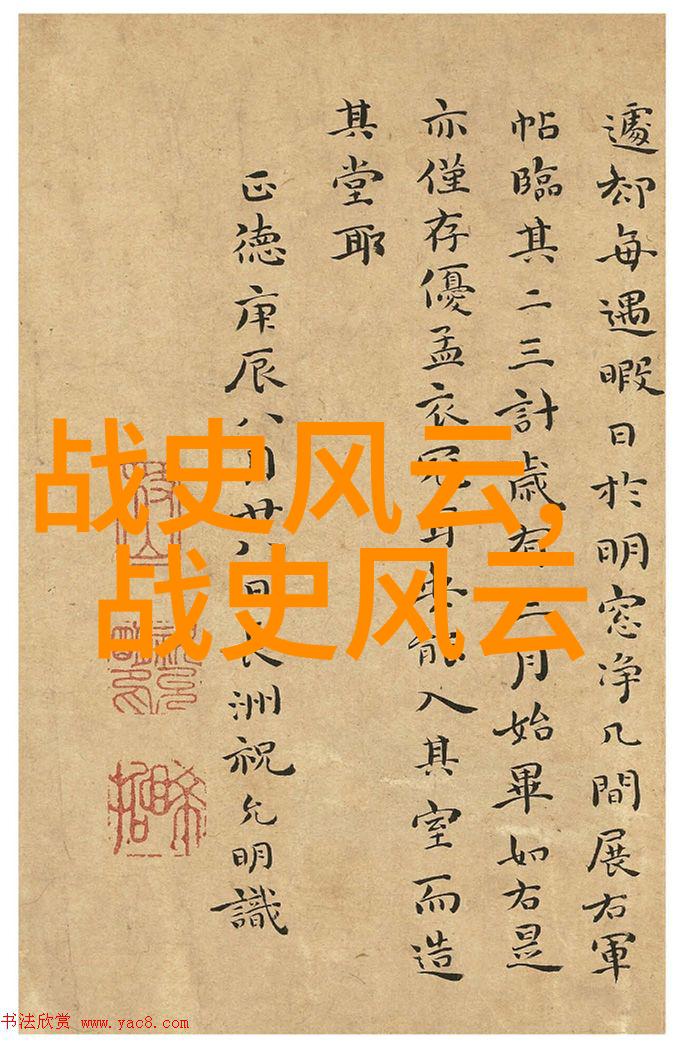 遽却每遇暇日於明窓净几間展右軍
帖臨其二三計歲有月始畢如右是
亦僅存優孟衣冠耳能入其室而造
其堂耶
正德庚辰八月廿八日長洲祝允明識
战史风云,
战史风云
书法欣赏 www.yac8.com